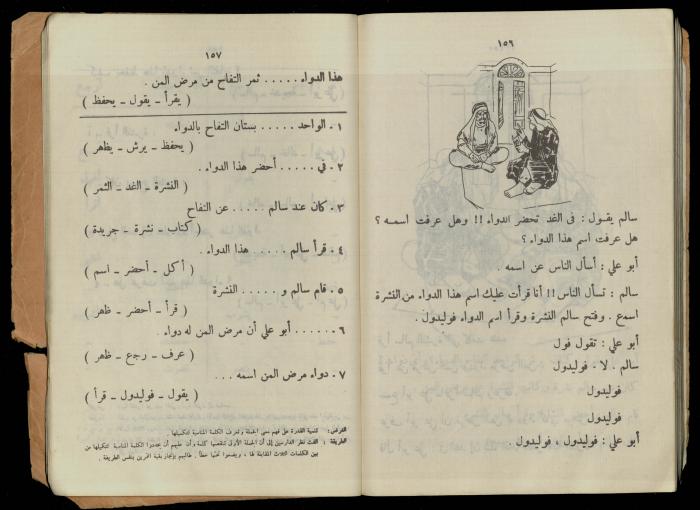 ١٥٦
سالم يقول : فى الغد تحضر الدواء !! وهل عرفت اسمه ؟
هل عرفت اسم هذا الدواء ؟
أبو علي : أسأل الناس عن اسمه .
سالم : تسأل الناس !! أنا قرأت عليك اسم هذا الدواء من النشرة
اسمع . وفتح سالم النشرة وقرأ اسم الدواء فوليدول .
أبو علي : تقول فول
سالم . لا . فوليدول
فوليدول
فوليدول
أبو علي : فوليدول ، فوليدول .
١٥٧
هذا الدواء ..... ثمر التفاح من مرض المن .
( يقرأ ــ يقول ــ يحفظ )
١ . الواحد ..... بستان التفاح بالدواء
( يحفظ ــ يرش ــ يظهر )
٢ . في ..... أحضر هذا الدواء .
( النشرة ــ الغد ــ الثمر )
٣ . كان عند سالم ..... عن التفاح
( كتاب ــ نشرة ــ جريدة )
٤ . قرأ سالم ..... هذا الدواء .
( أكل ــ أحضر ــ اسم )
٥ . قام سالم و ..... النشرة
( قرأ ــ أحضر ــ ظهر )
٦ ...... أبو علي أن مرض المن له دواء .
( عرف ــ رجع ــ ظهر )
٧ . دواء مرض المن اسمه ...
( يقول ــ فوليدول ــ قرأ )
الغرض : تنمية القدرة على فهم معنى الجملة وتعرف الكلمة المناسبة لتكملتها .
الطريقة : الفت نظر الدارسين إلى أن الجملة الأولى تنقصها كلمة وأن عليهم أن يحددوا الكلمة المناسبة لتكملتها من
بين الكلمات الثلاث المقابلة لها ، ويضعوا تحتها خطاً . طالبهم بإنجاز بقية التمرين بنفس الطريقة .